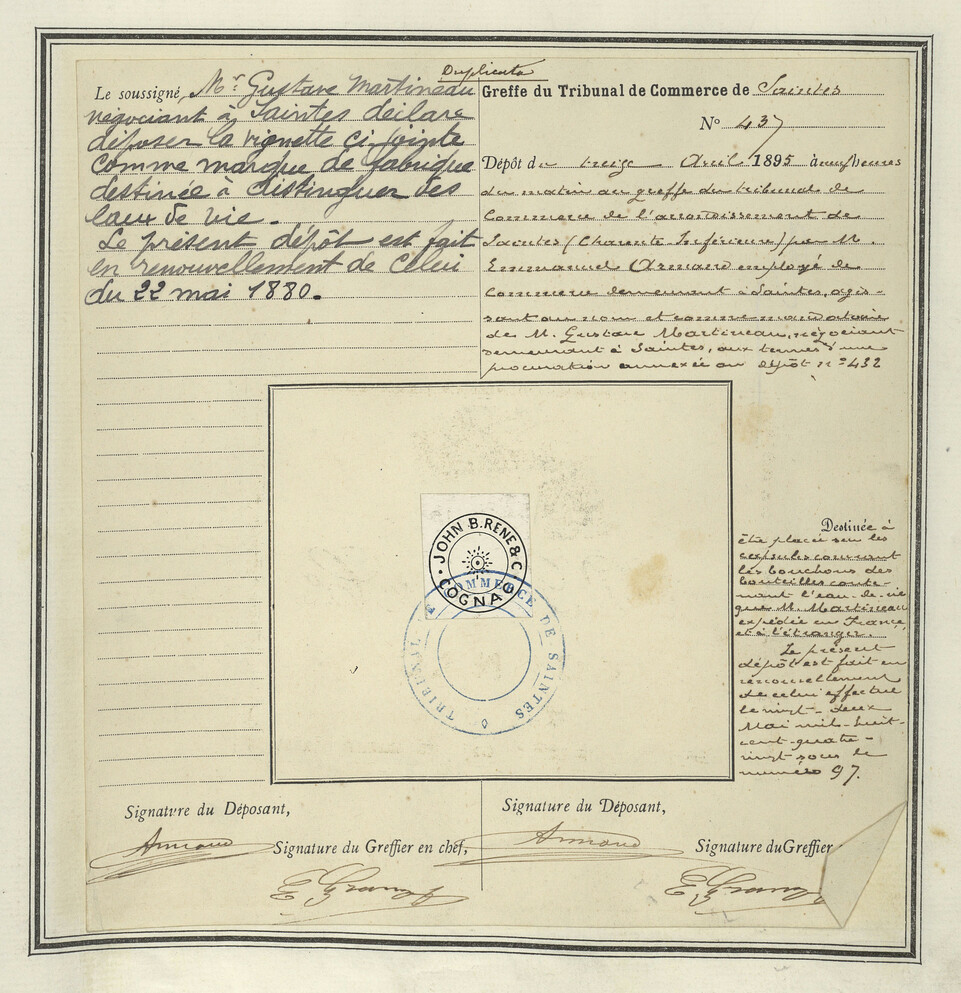 Duplicata
Le soussigné, Mr. Gustave Martineau
négociant à Saintes déclare
déposer la vignette ci-jointe
comme marque de fabrique
destinée à distinguer des
eaux de vie.
Le présent dépôt est fait
en renouvellement de celui
du 22 mai 1880.
Greffe du Tribunal de Commerce de Saintes
N° 437
Dépôt du treize Avril 1895 à neuf heures
du matin au greffe du tribunal de
Commerce de l'arrondissement de
Saintes (Charente Inférieure) par M.
Emmanuel Armand employé de
Commerce demeurant à Saintes, agis-
sant au nom et comme mandataire
de M. Gustave Martineau, négociant
demeurant à Saintes, aux termes d'une
procuration annexée au dépôt n° 432
JOHN B. RENE & C
COGNAC
TRIBUNAL DE COMMERCE DE SAINTES
Destinée à
être placée sur les
capsules couvrant
les bouchons des
bouteilles conte-
nant l'eau-de-vie
que M. Martineau
expédie en France
et à l'étranger.
Le présent
dépôt est fait en
renouvellement
de celui effectué
le vingt-deux
Mai mil-huit-
cent-quatre-
vingt sous le
numéro 97.
Signature du Déposant,
Armand
Signature du Greffier en chef,
Signature du Déposant,
Armand
Signature du Greffier